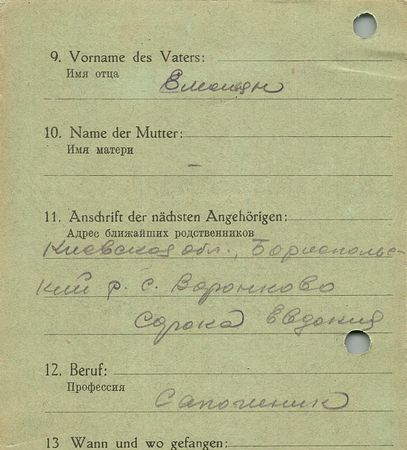 9. Vorname des Vaters:
Имя отца
Емельян
10. Name der Mutter:
Имя матери
–
11. Anschrift der nächsten Angehörigen:
Адрес ближайших родственников
Киевская обл., Бориспольс-
кий р. с. Воронково
Сорока Евдокия
12. Beruf:
Профессия
Сапожник
13 Wann und wo gefangen: